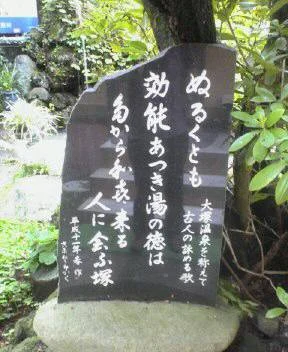 ぬるくとも
大塚温泉を称えて
古人の詠める歌
効能あつき湯の徳は
多から来る
人に会ふ塚
平成十一年春作